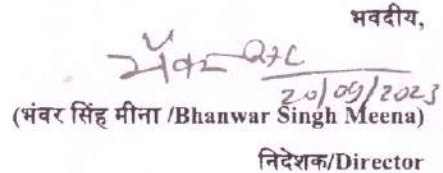 भवदीय,
भँवर सिंह
20/09/2023
(भंवर सिंह मीना /Bhanwar Singh Meena)
निदेशक/Director